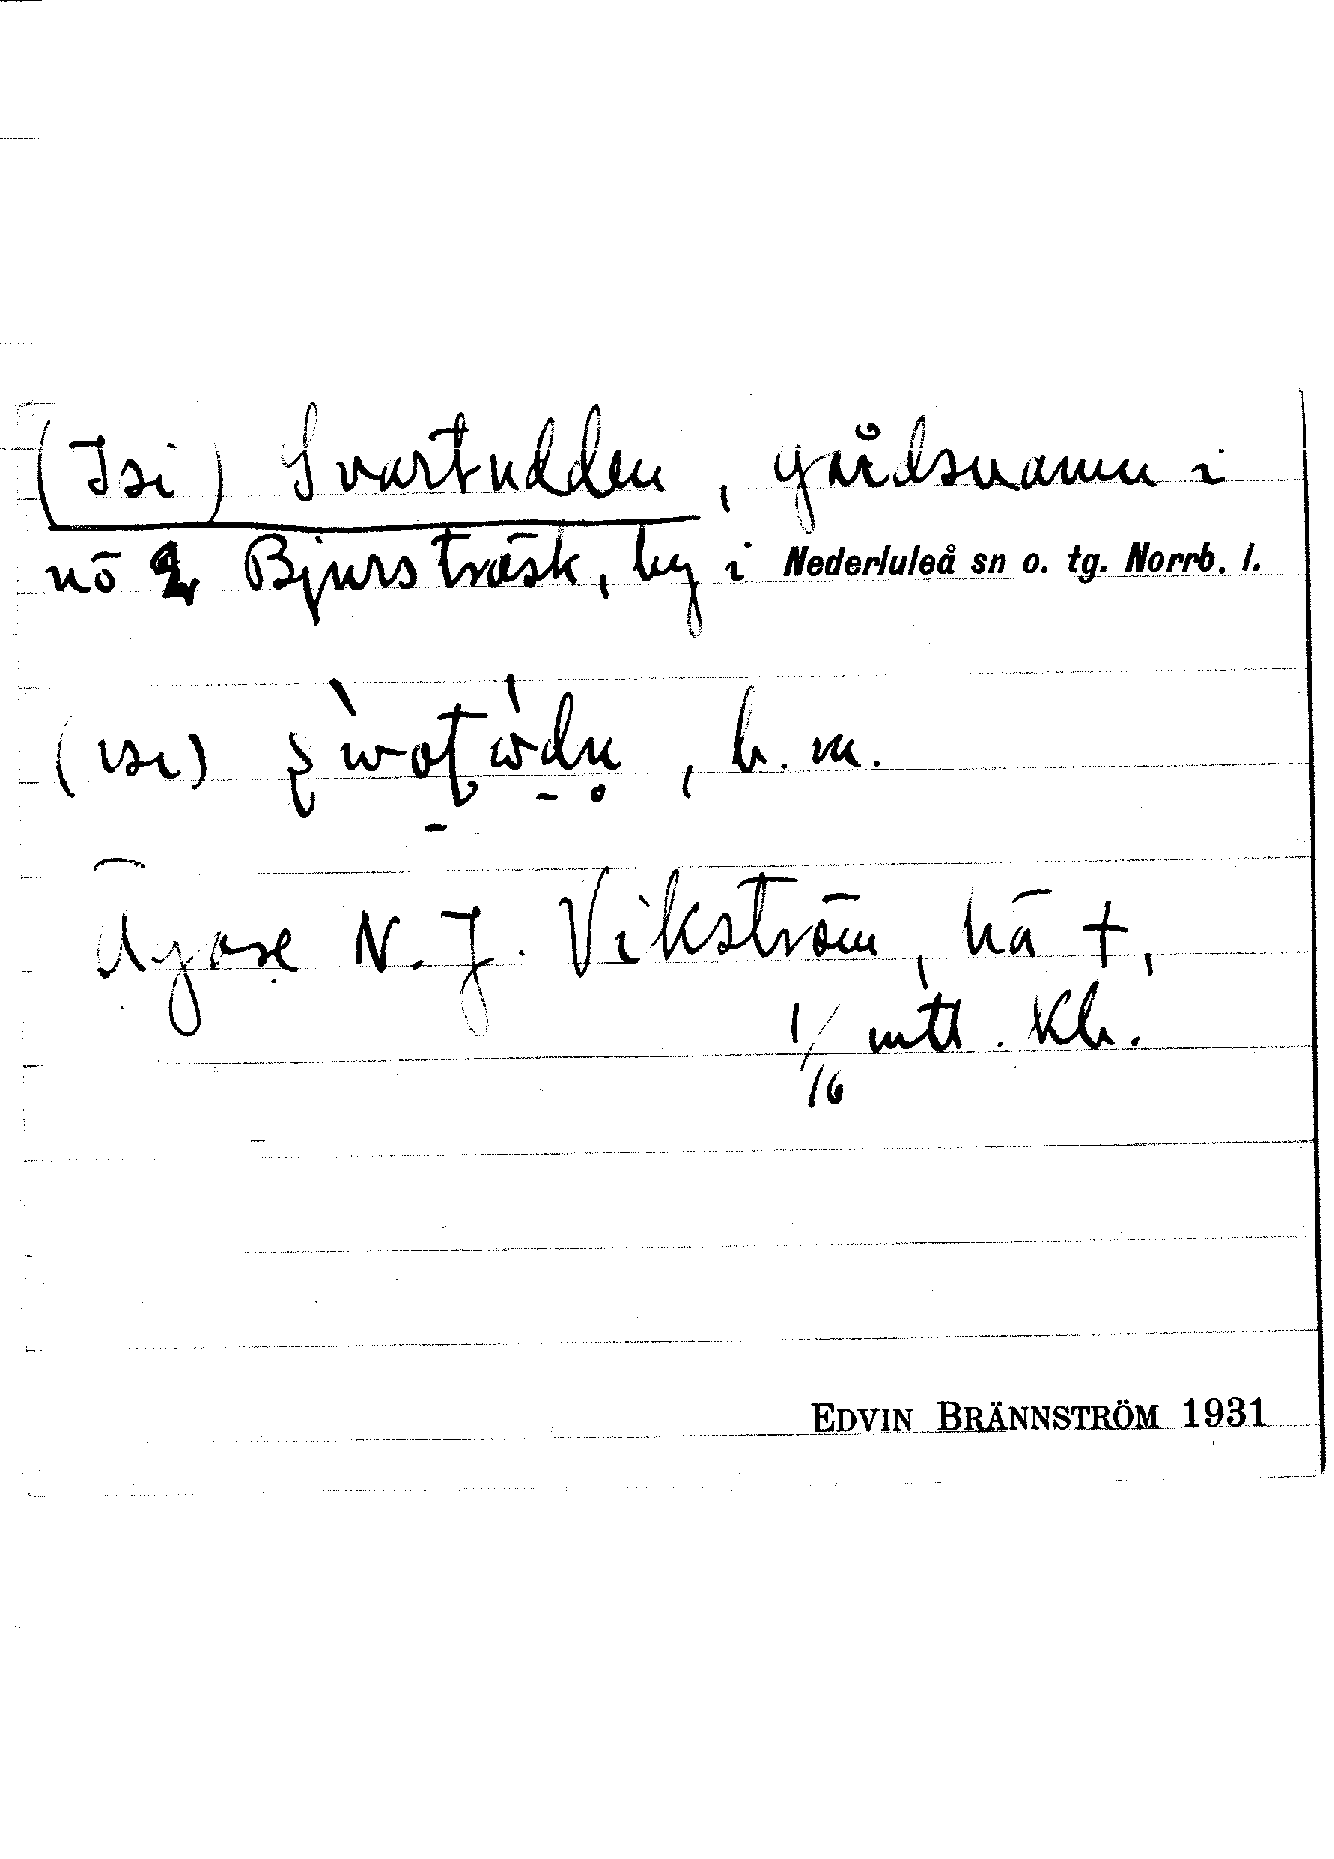 (Isi) Svartudden, gårdsnamn i
nö 2 Bjursträsk, by i Nederluleå sn o. tg. Norrb. l.
(isi) , b. m.
Ägare N. J. Vikström, hä +,
1/16 mtl. Kb.
EDVIN BRÄNNSTRÖM 1931